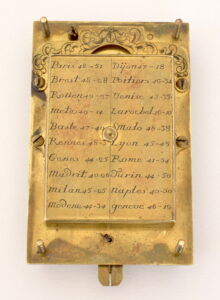 Paris 48-51 Dijon 47-18
Brest 48-28 Poitiers 46-34
Rouen 49-27 Venise 45-33
metz 49-14 Larochel 46-10
Basle 47-40 Smalo 48-38
Rennes 48-3 Lyon 45-49
Genes 44-25 Rome 41-54
Madrit 40-26 Turin 44-50
milan 45-25 naples 40-50
modene 44-34 geneve 46-10